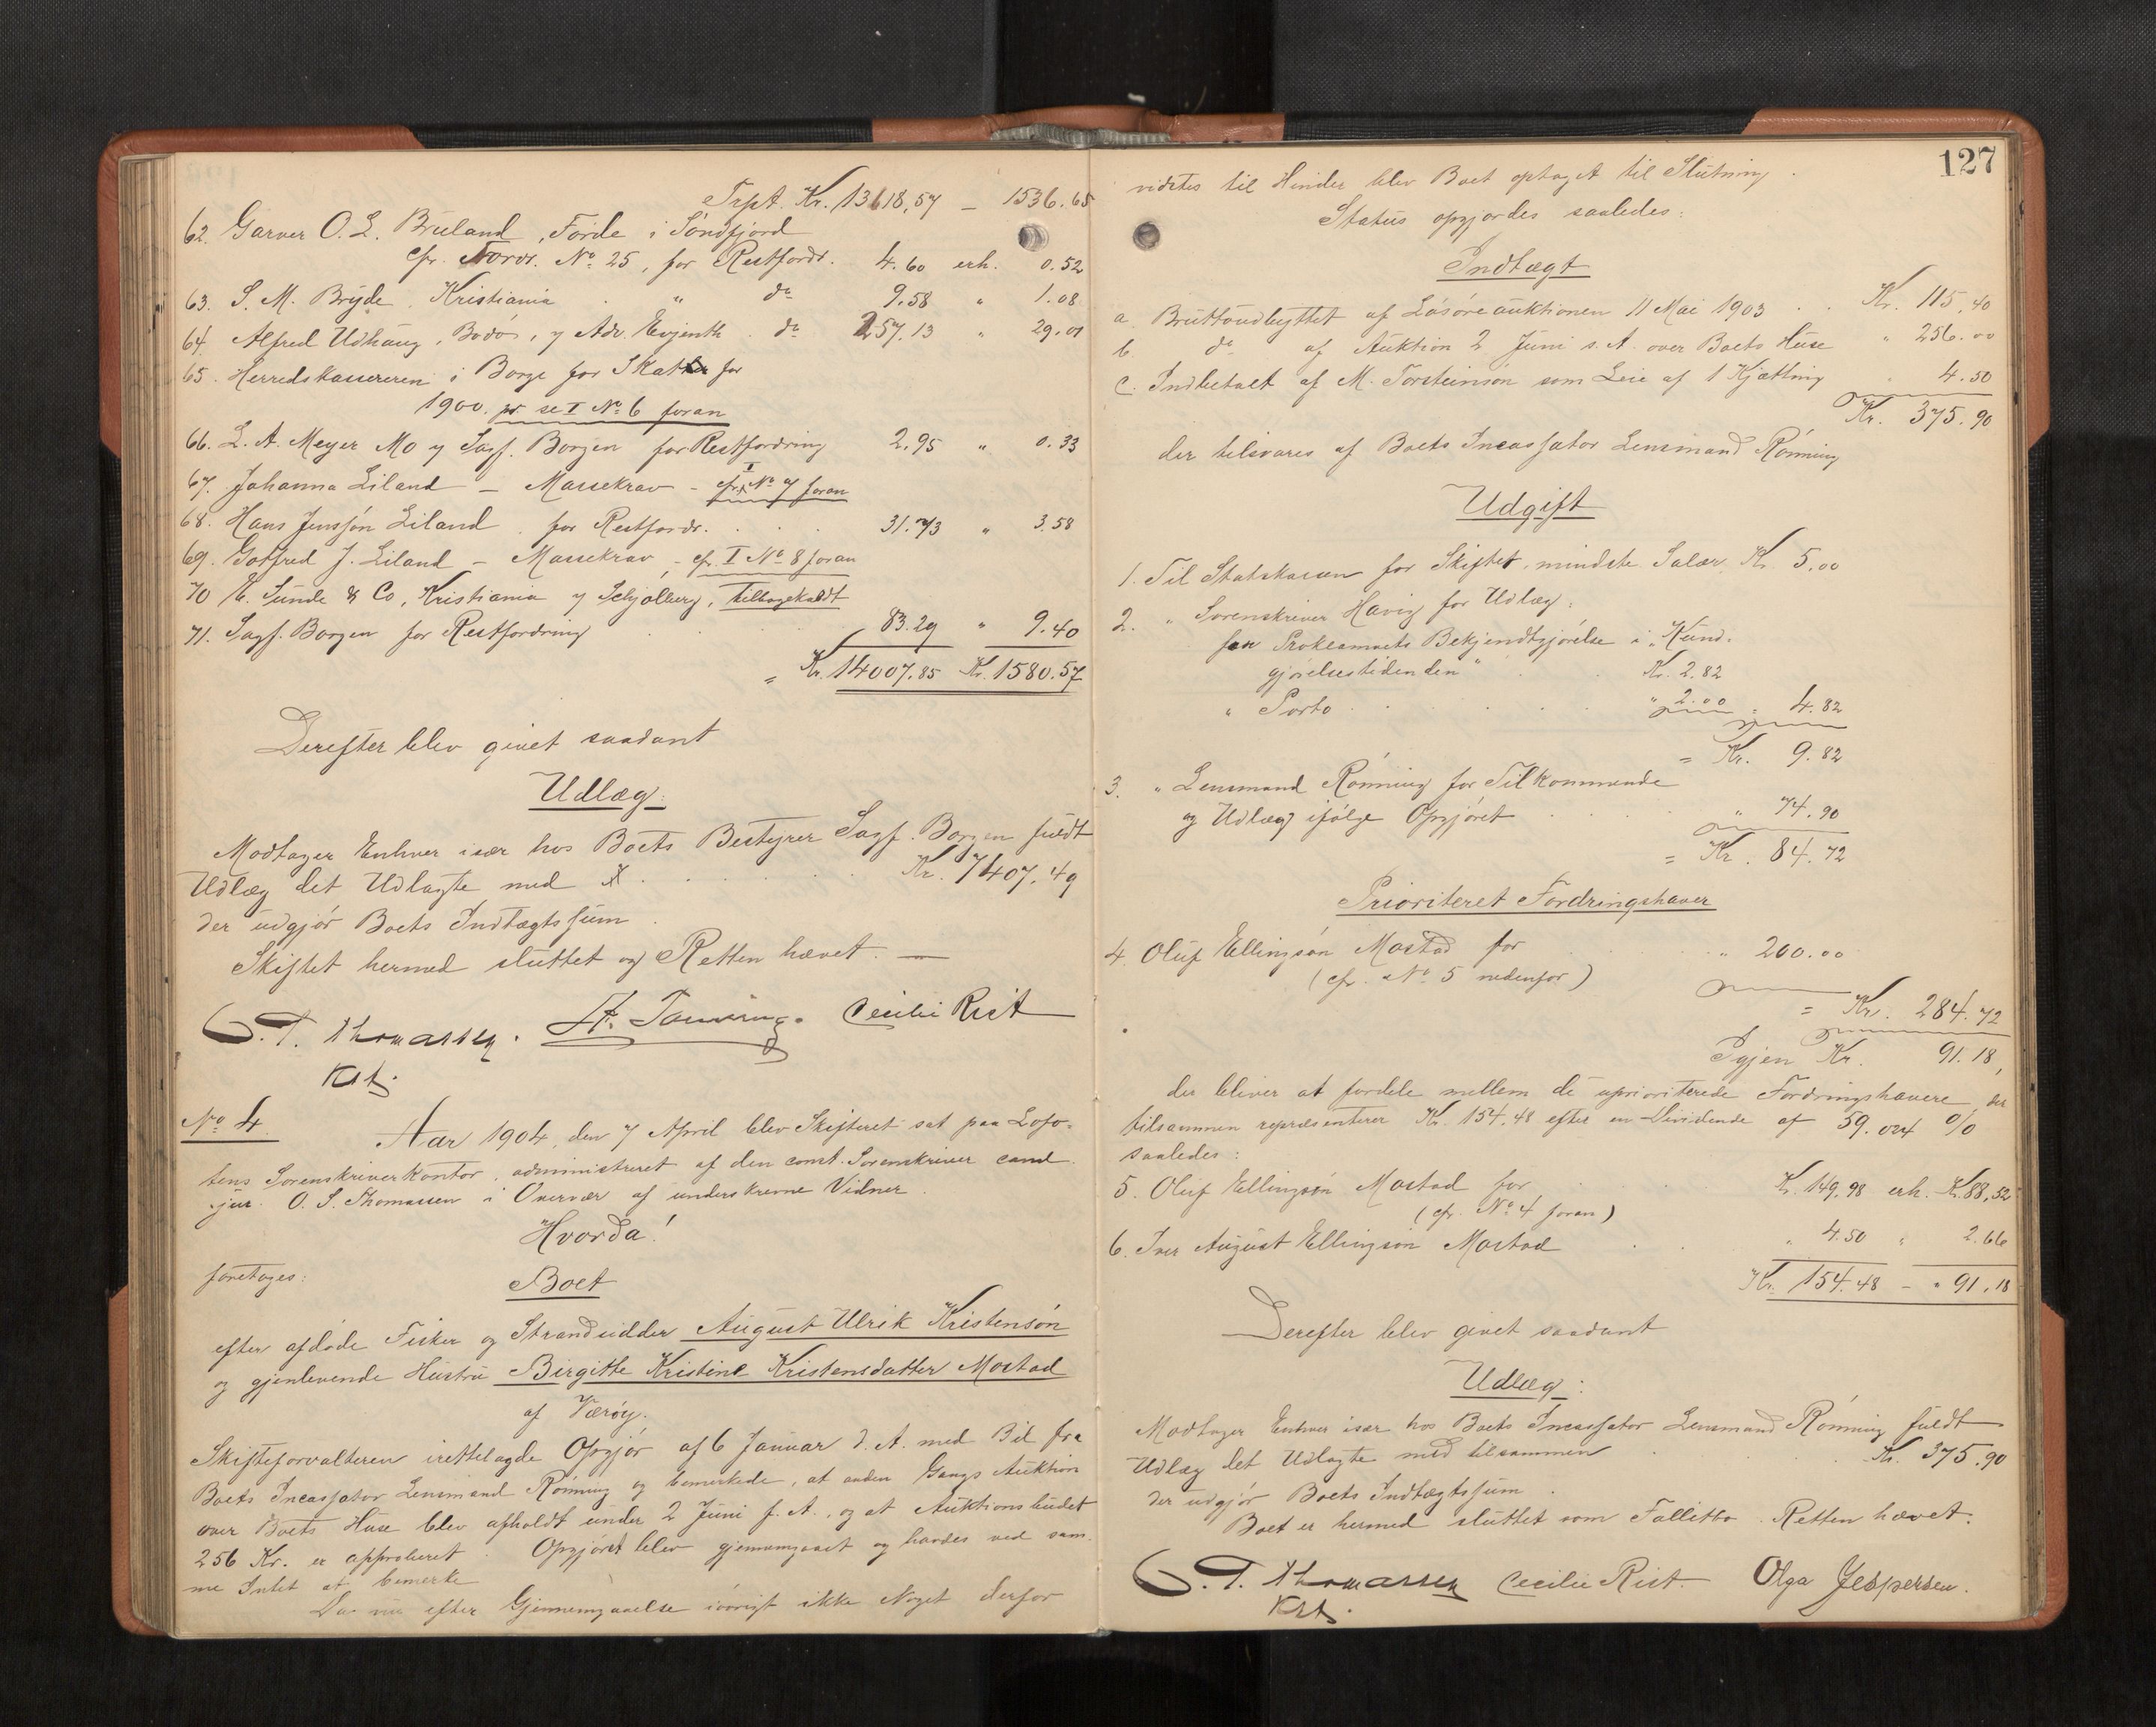 Trpt. Kr. 13618,57 — 1536.65
62. Garver O. L. Bruland, Förde i Söndfjord
cfr. Fordr. No 25, for Restfordr. 4.60 erh. 0.52
63. S. M. Bryde, Kristiania " do 9.58 " 1.08
64. Alfred Udhaug, Bodö, v Adv. Evjenth. do 257.13 " 29.01
65. Herredskassereren i Borge for Skatter for
1900. se I No 6 foran
66. L. A. Meyer Mo v Sagf. Borgen for Restfordring 2.95 " 0.33
67. Johanna Liland — Massekrav — cfr. I No 7 foran
68. Hans Jenssön Liland for Restfordr. . . . 31.73 " 3.58
69. Gotfred J. Liland — Massekrav — cfr. I No 8 foran
70 E. Sunde & Co, Kristiania v Schjölberg, tilbagekaldt
71. Sagf. Borgen for Restfordring 83.29 " 9.40
= Kr. 14007.85 Kr. 1580.57
Derefter blev givet saadant
Udlæg:
Modtager Enhver især hos Boets Bestyrer Sagf. Borgen fuldt
Udlæg det Udlagte med . . . Kr. 7407.49
der udgjör Boets Indtægtssum.
Skiftet hermed sluttet og Retten hævet. —
O. T. Thomassen. Cecilie Rist
Kst.
No 4.
Aar 1904, den 7 April blev Skifteret sat paa Lofo-
tens Sorenskriverkontor, administreret af den const. Sorenskriver cand.
jur. O. S. Thomassen i Overvær af underskrevne Vidner
Hvorda!
foretoges:
Boet
efter afdöde Fisker og Strandsidder August Ulrik Kristensön
og gjenlevende Hustru Birgitte Kristine Kristensdatter Mostad
af Væröy.
Skifteforvalteren irettelagde Opgjör af 6 Januar d. A. med Bil. fra
Boets Incassator Lensmand Rönning og bemerkede, at anden Gangs Auktion
over Boets Huse blev afholdt under 2 Juni f. A., og at Auktionsbudet
256 Kr. er approberet. Opgjöret blev gjennemgaaet og havdes ved sam-
me Intet at bemerke
Da nu efter Gjennemgaaelse iövrigt ikke Noget derfor
127
vidstes til Hinder blev Boet optaget til Slutning.
Status opgjordes saaledes:
Indtægt
a. Bruttoudbyttet af Lösöreauktionen 11 Mai 1903 . . Kr. 115,40
b. do af Auktion 2 Juni s. A. over Boets Huse " 256.00
c. Indbetalt af M. Torsteinsön som Leie af 1 Kjætting " 4.50
Kr. 375.90
der tilsvares af Boets Incassator Lensmand Rönning
Udgift
1. Til Statskassen for Skiftet, mindste Salær Kr. 5.00
2. " Sorenskriver Havig for Udlæg:
for Proklamaets Bekjendtgjörelse i "Kund-
gjörelsestidenden" . Kr. 2.82
" Porto . . . " 2.00 = 4.82
= Kr. 9.82
3. " Lensmand Rönning for Tilkommende
og Udlæg ifölge Opgjöret . . . " 74.90
= Kr. 84.72
Prioriteret Fordringshaver
4. Oluf Ellingsön Mostad for . . " 200.00
(cfr. No 5 nedenfor)
= Kr. 284.72
Igjen Kr. 91.18,
der bliver at fordele mellem de uprioriterede Fordringshavere, der
tilsammen repræsenterer Kr. 154.48 efter en Dividende af 59.024 %
saaledes:
5. Oluf Ellingsön Mostad for . . Kr. 149.98 erh. Kr. 88,52
(cfr. No 4 foran)
6. Iver August Ellingsön Mostad . . " 4.50 " 2.66
Kr. 154.48 — " 91.18
Derefter blev givet saadant
Udlæg:
Modtager Enhver især hos Boets Incassator Lensmand Rönning fuldt
Udlæg det Udlagte med tilsammen . . . Kr. 375.90
der udgjör Boets Indtægtssum.
Boet er hermed sluttet som Fallitbo. Retten hævet.
O. T. Thomassen Cecilie Rist. Olga Jespersen.
Kst.